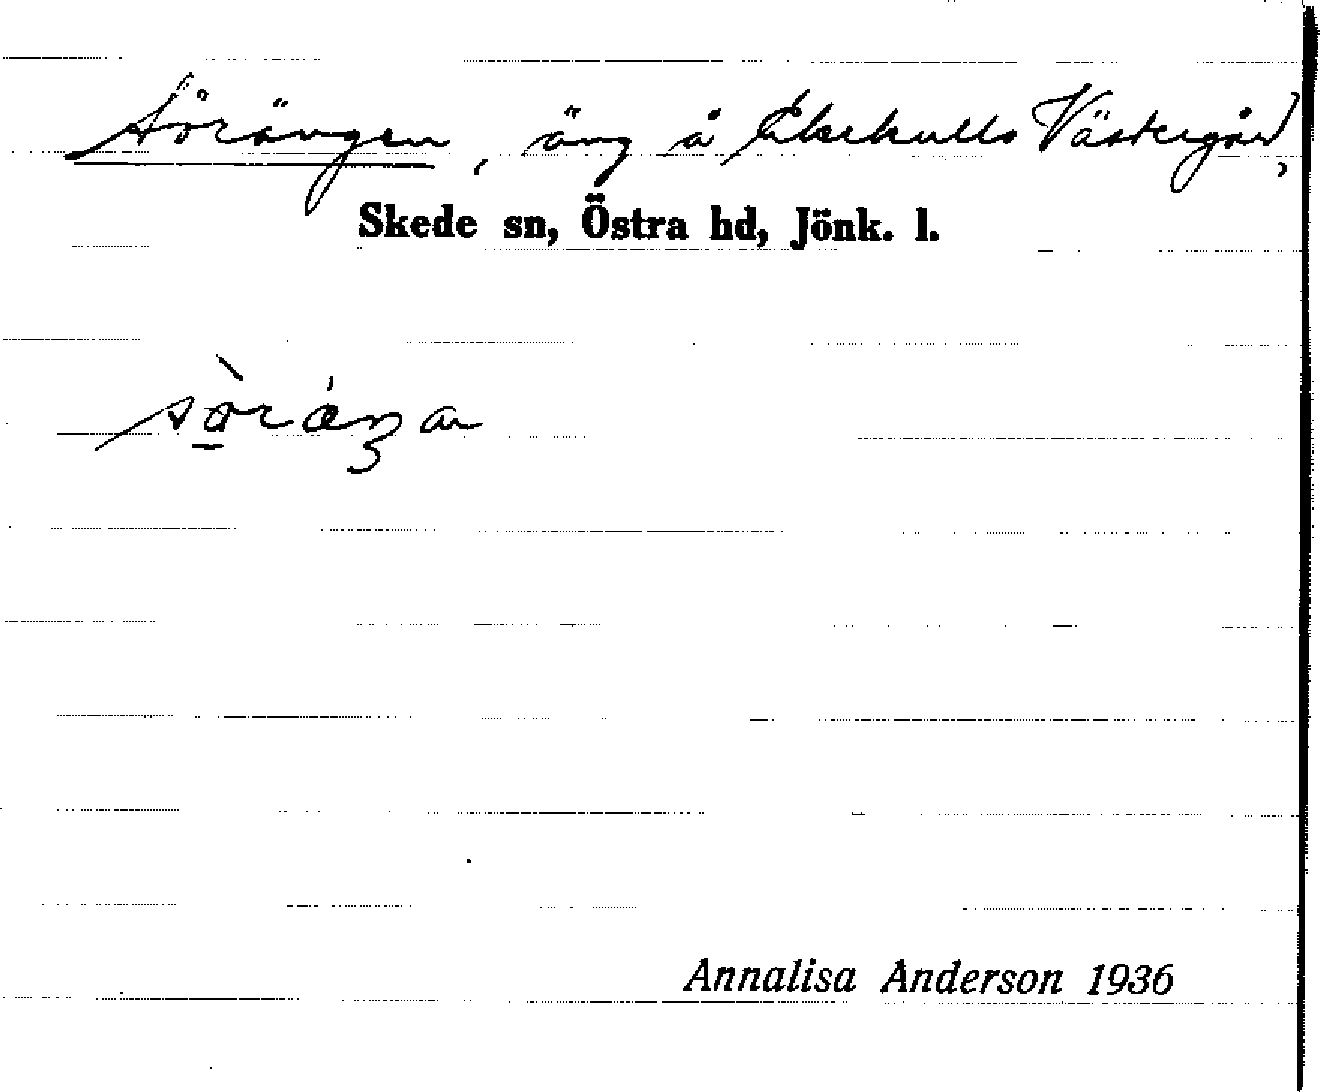 Sörängen, äng å Ekekulls Västergård,
Skede sn, Östra hd, Jönk. l.
Annalisa Anderson 1936